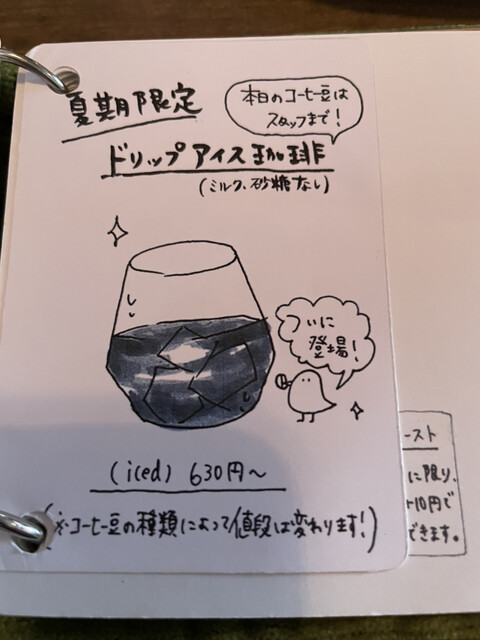 夏期限定
本日のコーヒー豆は
スタッフまで!
ドリップアイス珈琲
(ミルク、砂糖なし)
ついに
登場!
(iced) 630円～
(※コーヒー豆の種類によって値段は変わります!)
ースト
に限り、
+10円で
できます。